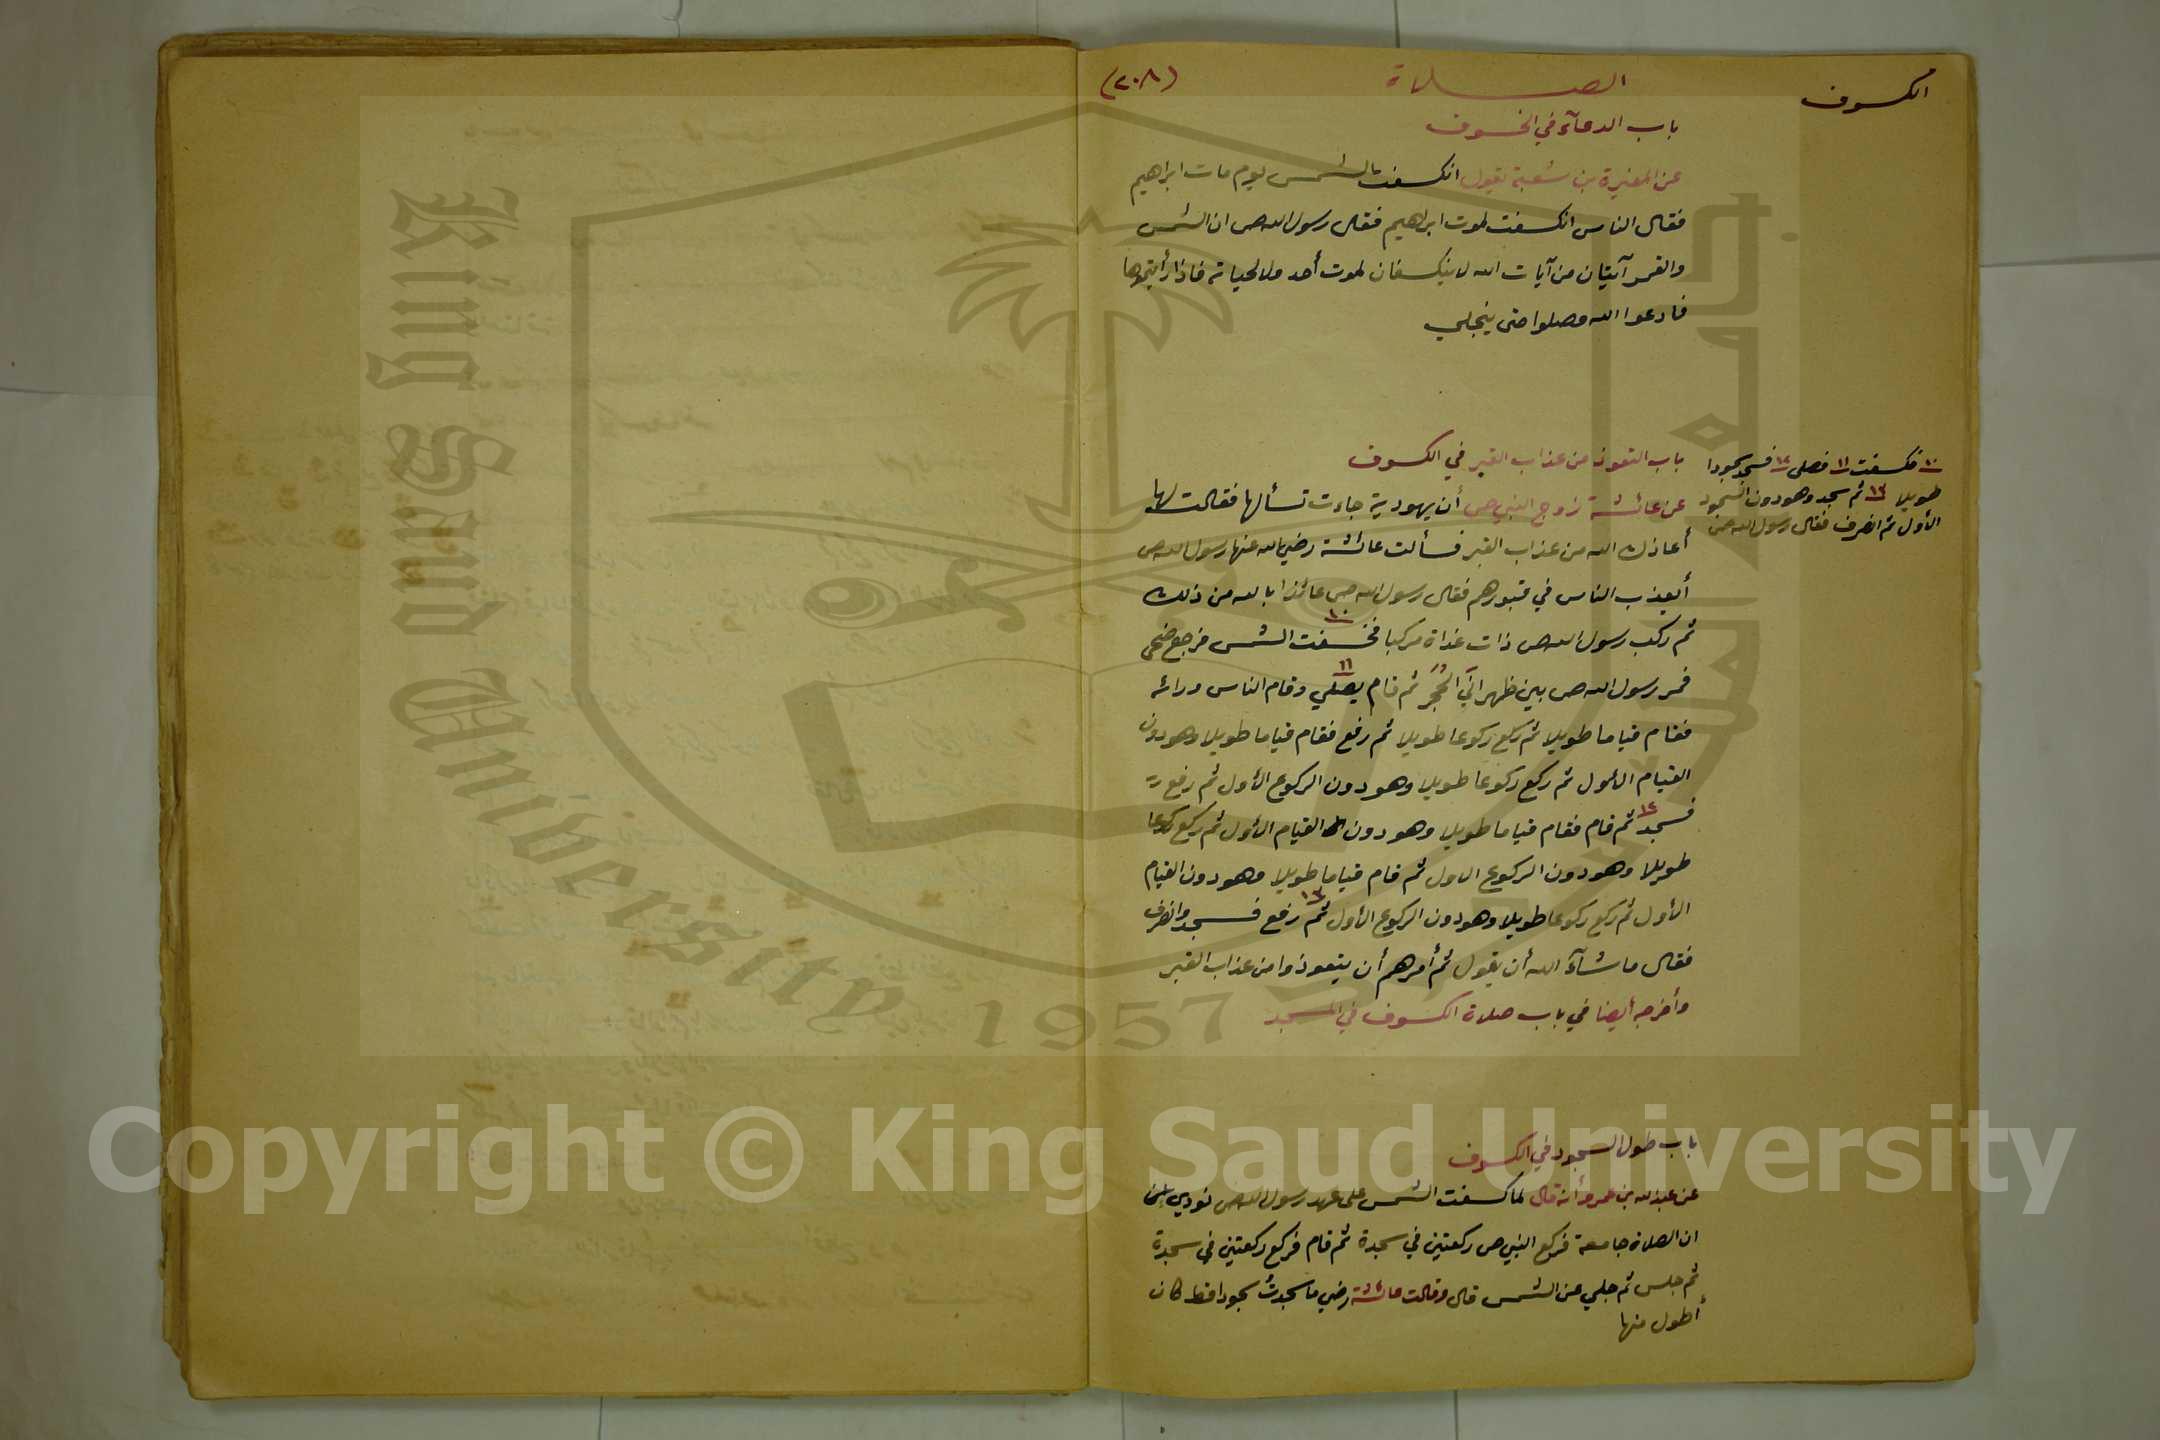 الكسوف
الصلاة
(٢٠٨)
باب الدعآء في الخسوف
عن المغيرة بن شعبة يقول انكسفت الشمس يوم مات ابراهيم
فقال الناس انكسفت لموت ابراهيم فقال رسول الله ص ان الشمس
والقمر آيتان من آيات الله لا ينكسفان لموت أحد ولا لحياته فاذا رأيتموها
فادعوا الله وصلوا حتى ينجلي
باب التعوذ من عذاب القبر في الكسوف
عن عائشة زوج النبي ص أن يهودية جاءت تسألها فقالت لها
أعاذك الله من عذاب القبر فسألت عائشة رضي الله عنها رسول الله ص
أيعذب الناس في قبورهم فقال رسول الله ص عائذا بالله من ذلك
ثم ركب رسول الله ص ذات غداة مركبا فخسفت ١٠ الشمس فرجع ضحى
فمر رسول الله ص بين ظهراني الحُجَر ثم قام يصلي ١١ وقام الناس ورائه
فقام قياما طويلا ثم ركع ركوعا طويلا ثم رفع فقام قياما طويلا وهو دون
القيام الأول ثم ركع ركوعا طويلا وهو دون الركوع الأول ثم رفع
فسجد ١٢ ثم قام فقام قياما طويلا وهو دون القيام الأول ثم ركع ركوعا
طويلا وهو دون الركوع الاول ثم قام قياما طويلا وهو دون القيام
الأول ثم ركع ركوعا طويلا وهو دون الركوع الأول ثم ١٣ رفع فسجد وانصرف
فقال ما شآء الله أن يقول ثم أمرهم أن يتعوذوا من عذاب القبر
وأخرجه أيضا في باب صلاة الكسوف في المسجد
١٠ فكسفت ١١ فصلى ١٢ فسجد سجودا
طويلا ١٣ ثم سجد وهو دون السجود
الأول ثم انصرف فقال رسول الله ص
باب طول السجود في الكسوف
عن عبد الله بن عمرو أنه قال لما كسفت الشمس على عهد رسول الله ص نودي
ان الصلاة جامعة فركع النبي ص ركعتين في سجدة ثم قام فركع ركعتين في سجدة
ثم جلس ثم جلي عن الشمس قال وقالت عائشة رضي ما سجدتُ سجودا قط كان
أطول منها
King Saud University
1957
Copyright © King Saud University